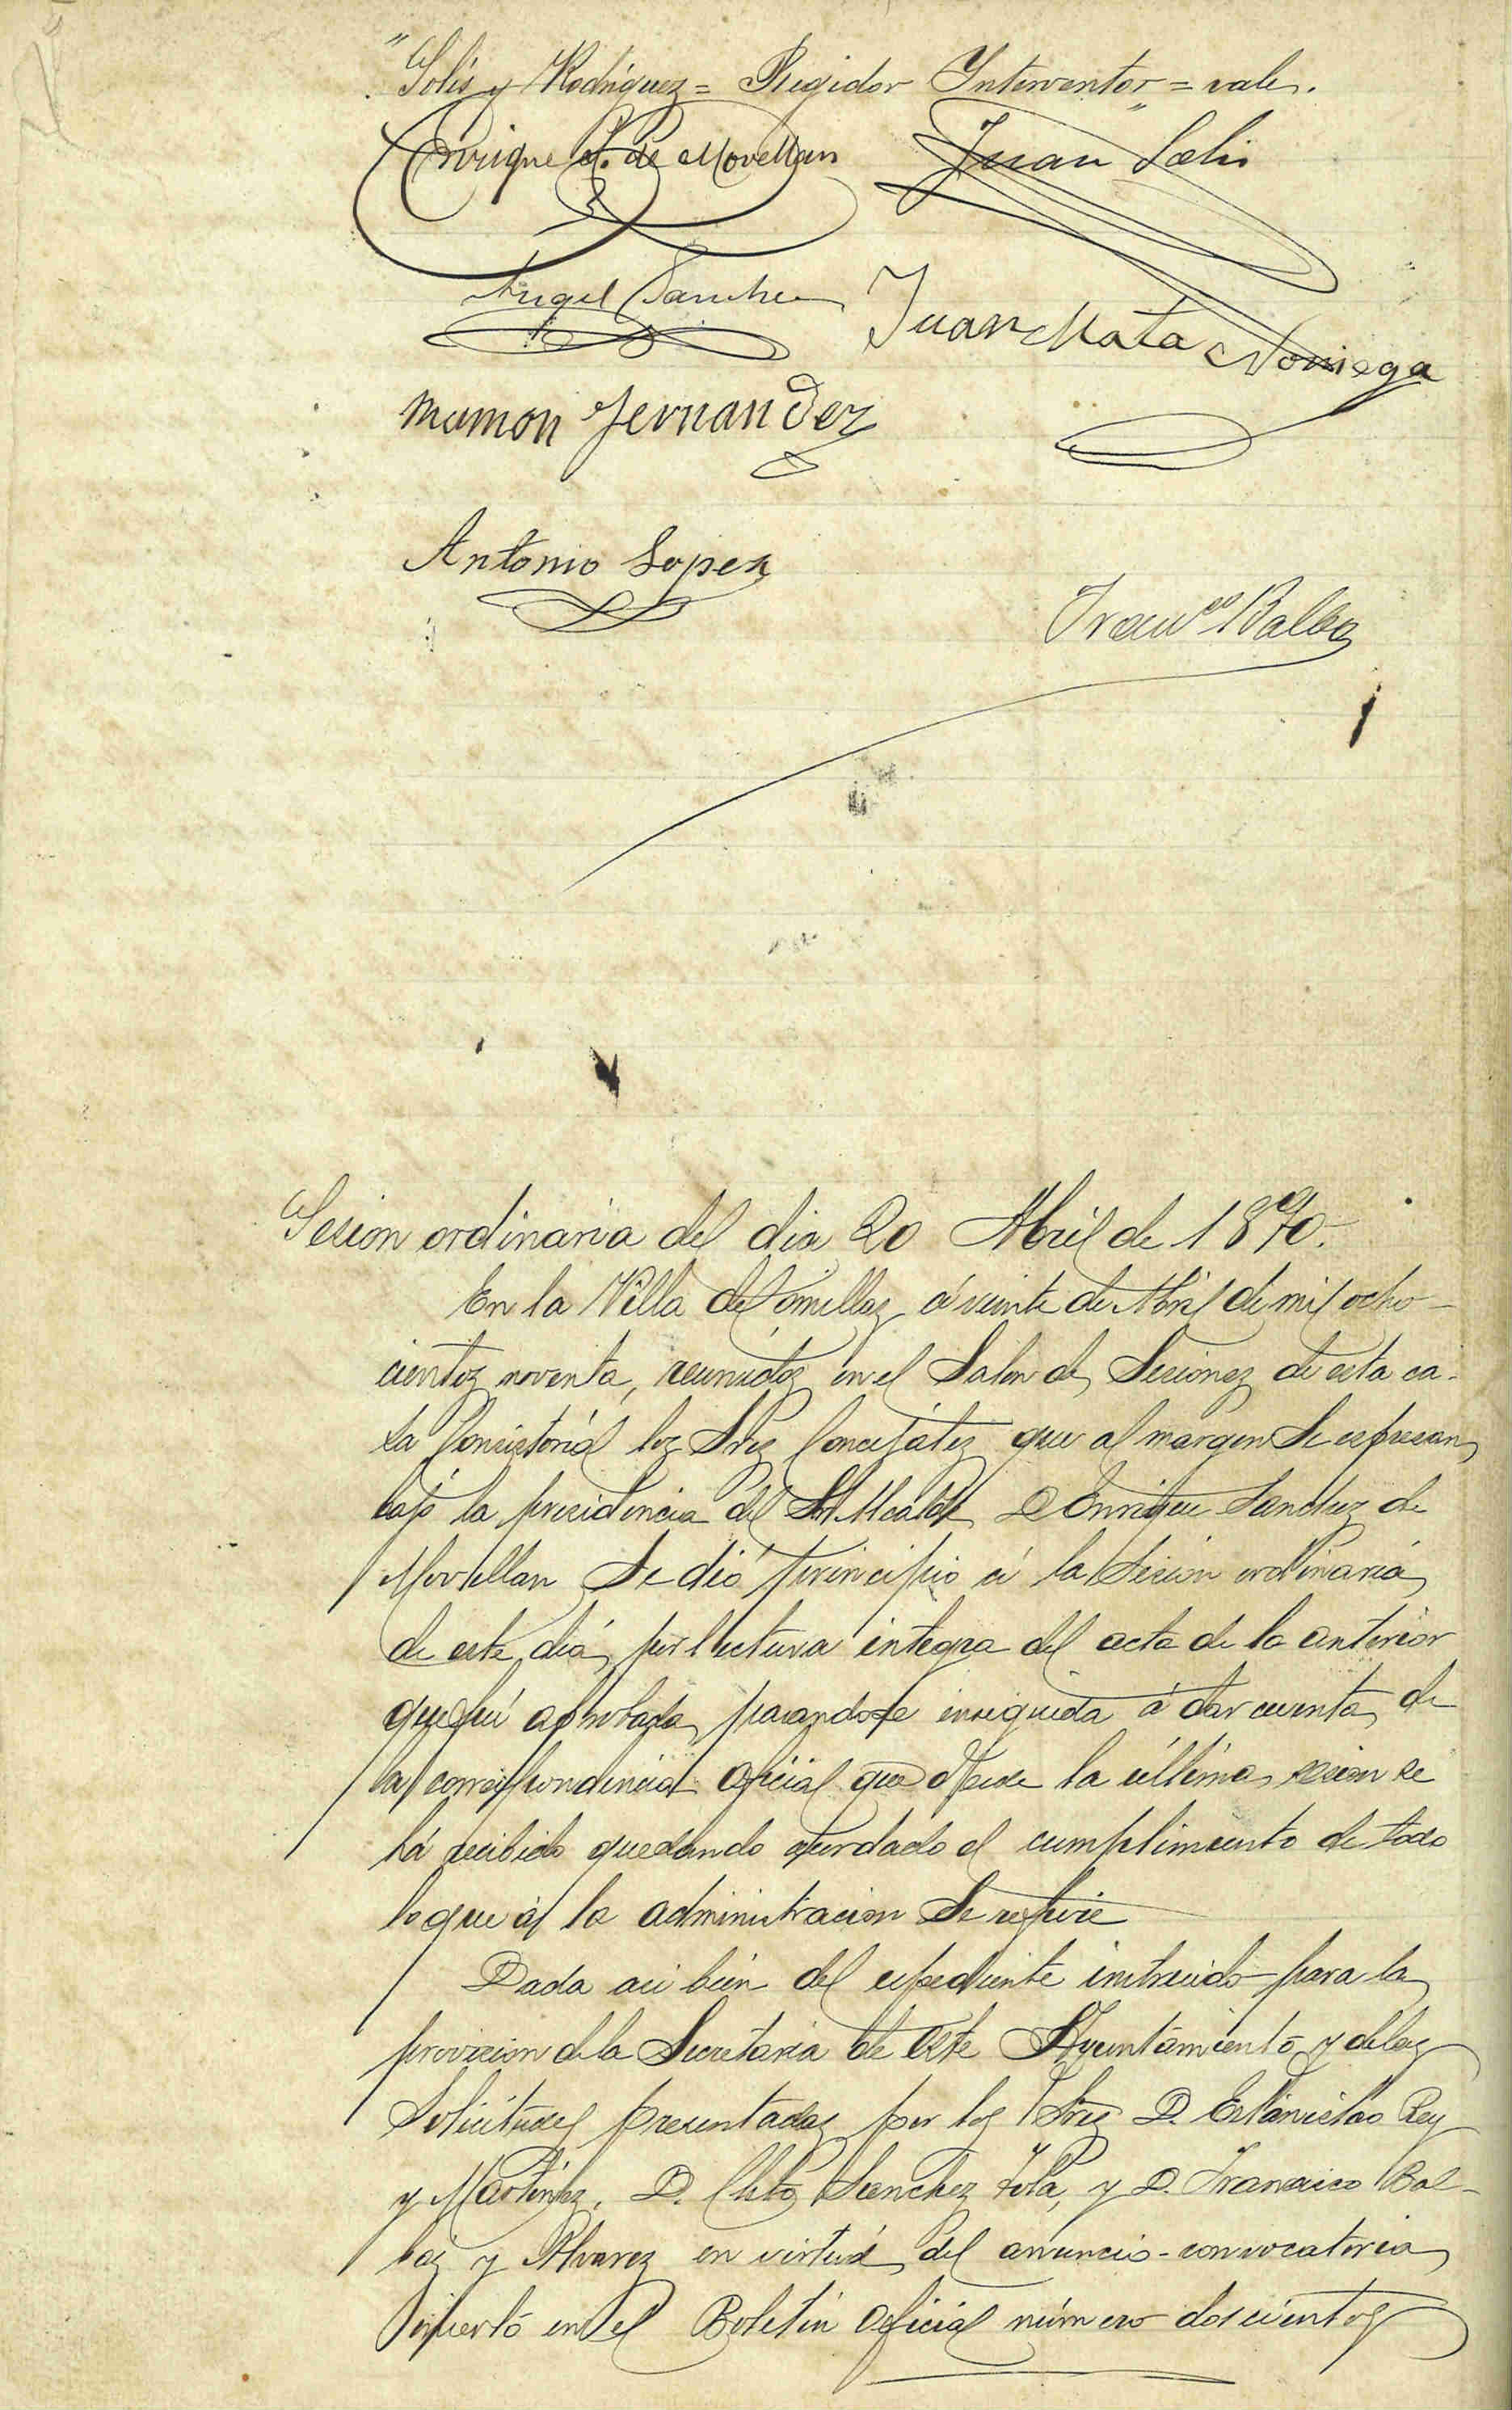 "Solis y Rodriguez = Regidor Interventor" = vale.
Enrique S. de Movellan
Juan Solis
Angel Sanchez
Juan Mata Noriega
Ramon Fernandez
Antonio Lopez
Franco Balbas
Sesion ordinaria del dia 20 Abril de 1890.
En la Villa de Comillas, á veinte de Abril de mil ocho-
cientos noventa, reunidos en el Salon de Sesiones de esta ca-
sa Consistorial los Sres Concejales que al margen se espresan,
bajo la presidencia del Sr Alcalde D Enrique Sanchez de
Movellan se dió principio á la Sesion ordinaria
de este dia, por lectura integra del acta de la anterior
que fué aprobada, pasandose enseguida á dar cuenta, de
la correspondencia oficial que desde la última, sesion se
há recibido quedando acordado el cumplimiento de todo
lo que á la administracion se refiere
Dada asi bien del espediente instruido para la
provision de la Secretaria de este Ayuntamiento y de las
solicitudes presentadas por los Sres D. Estanislao Rey
y Martinez, D. Cleto Sanchez Tola, y D. Francisco Bal-
bas y Alvarez en virtud del anuncio-convocatoria
inserto en el Boletin oficial número doscientos